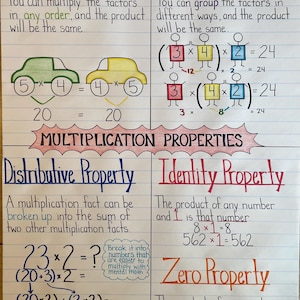 You can multiply the factors
in any order, and the product
will be the same.
5 × 4 = 4 × 5
20 = 20
You can group the factors in
different ways, and the product
will be the same.
(3 × 4) × 2 = 24
12 × 2 = 24
3 × (4 × 2) = 24
3 × 8 = 24
MULTIPLICATION PROPERTIES
Distributive Property
A multiplication fact can be
broken up into the sum of
two other multiplication facts.
23 × 2 = ?
(20+3)×2 =
Break it into
numbers that
are easier to
multiply with
mental math
Identity Property
The product of any number
and 1 is that number
8 × 1 = 8
562 × 1 = 562
Zero Property